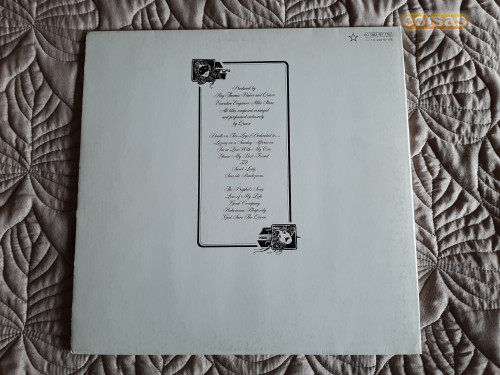 coisas
Produced by
Roy Thomas Baker and Queen
Executive Engineer Mike Stone
All titles composed arranged
and performed exclusively
by Queen
Death on Two Legs (Dedicated to....
Lazing on a Sunday Afternoon
I'm in Love With My Car
You're My Best Friend
'39
Sweet Lady
Seaside Rendezvous
The Prophet's Song
Love of My Life
Good Company
Bohemian Rhapsody
God Save The Queen